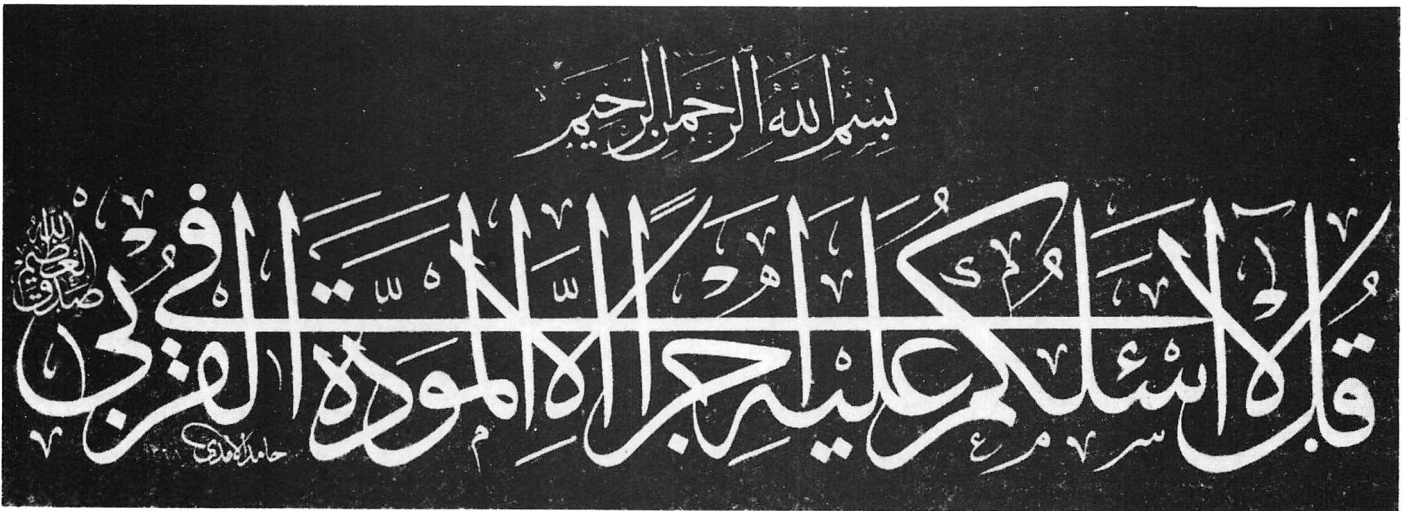 بِسْمِ اللّٰهِ الرَّحْمٰنِ الرَّحِيمِ
قُلْ لَا أَسْـَٔلُكُمْ عَلَيْهِ أَجْرًا إِلَّا الْمَوَدَّةَ فِي الْقُرْبٰى
صدق الله العظيم
حامد الآمدي